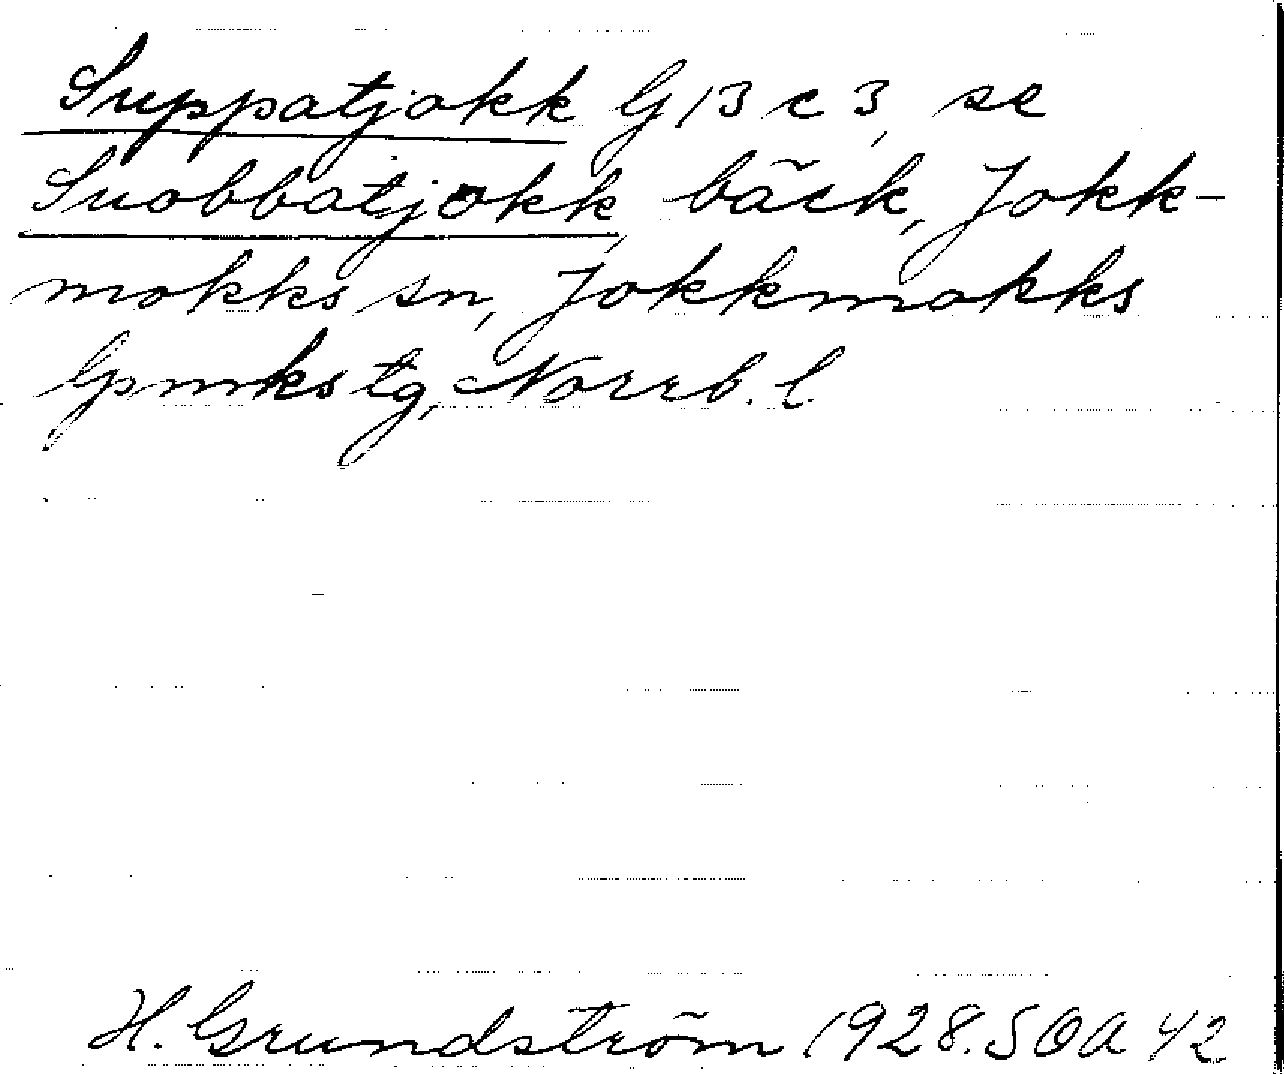 Suppatjokk G 13 c 3, se
Suobbatjokk, bäck, Jokk-
mokks sn, Jokkmokks
lpmks tg, Norrb. l.
H. Grundström 1928. SOA 42